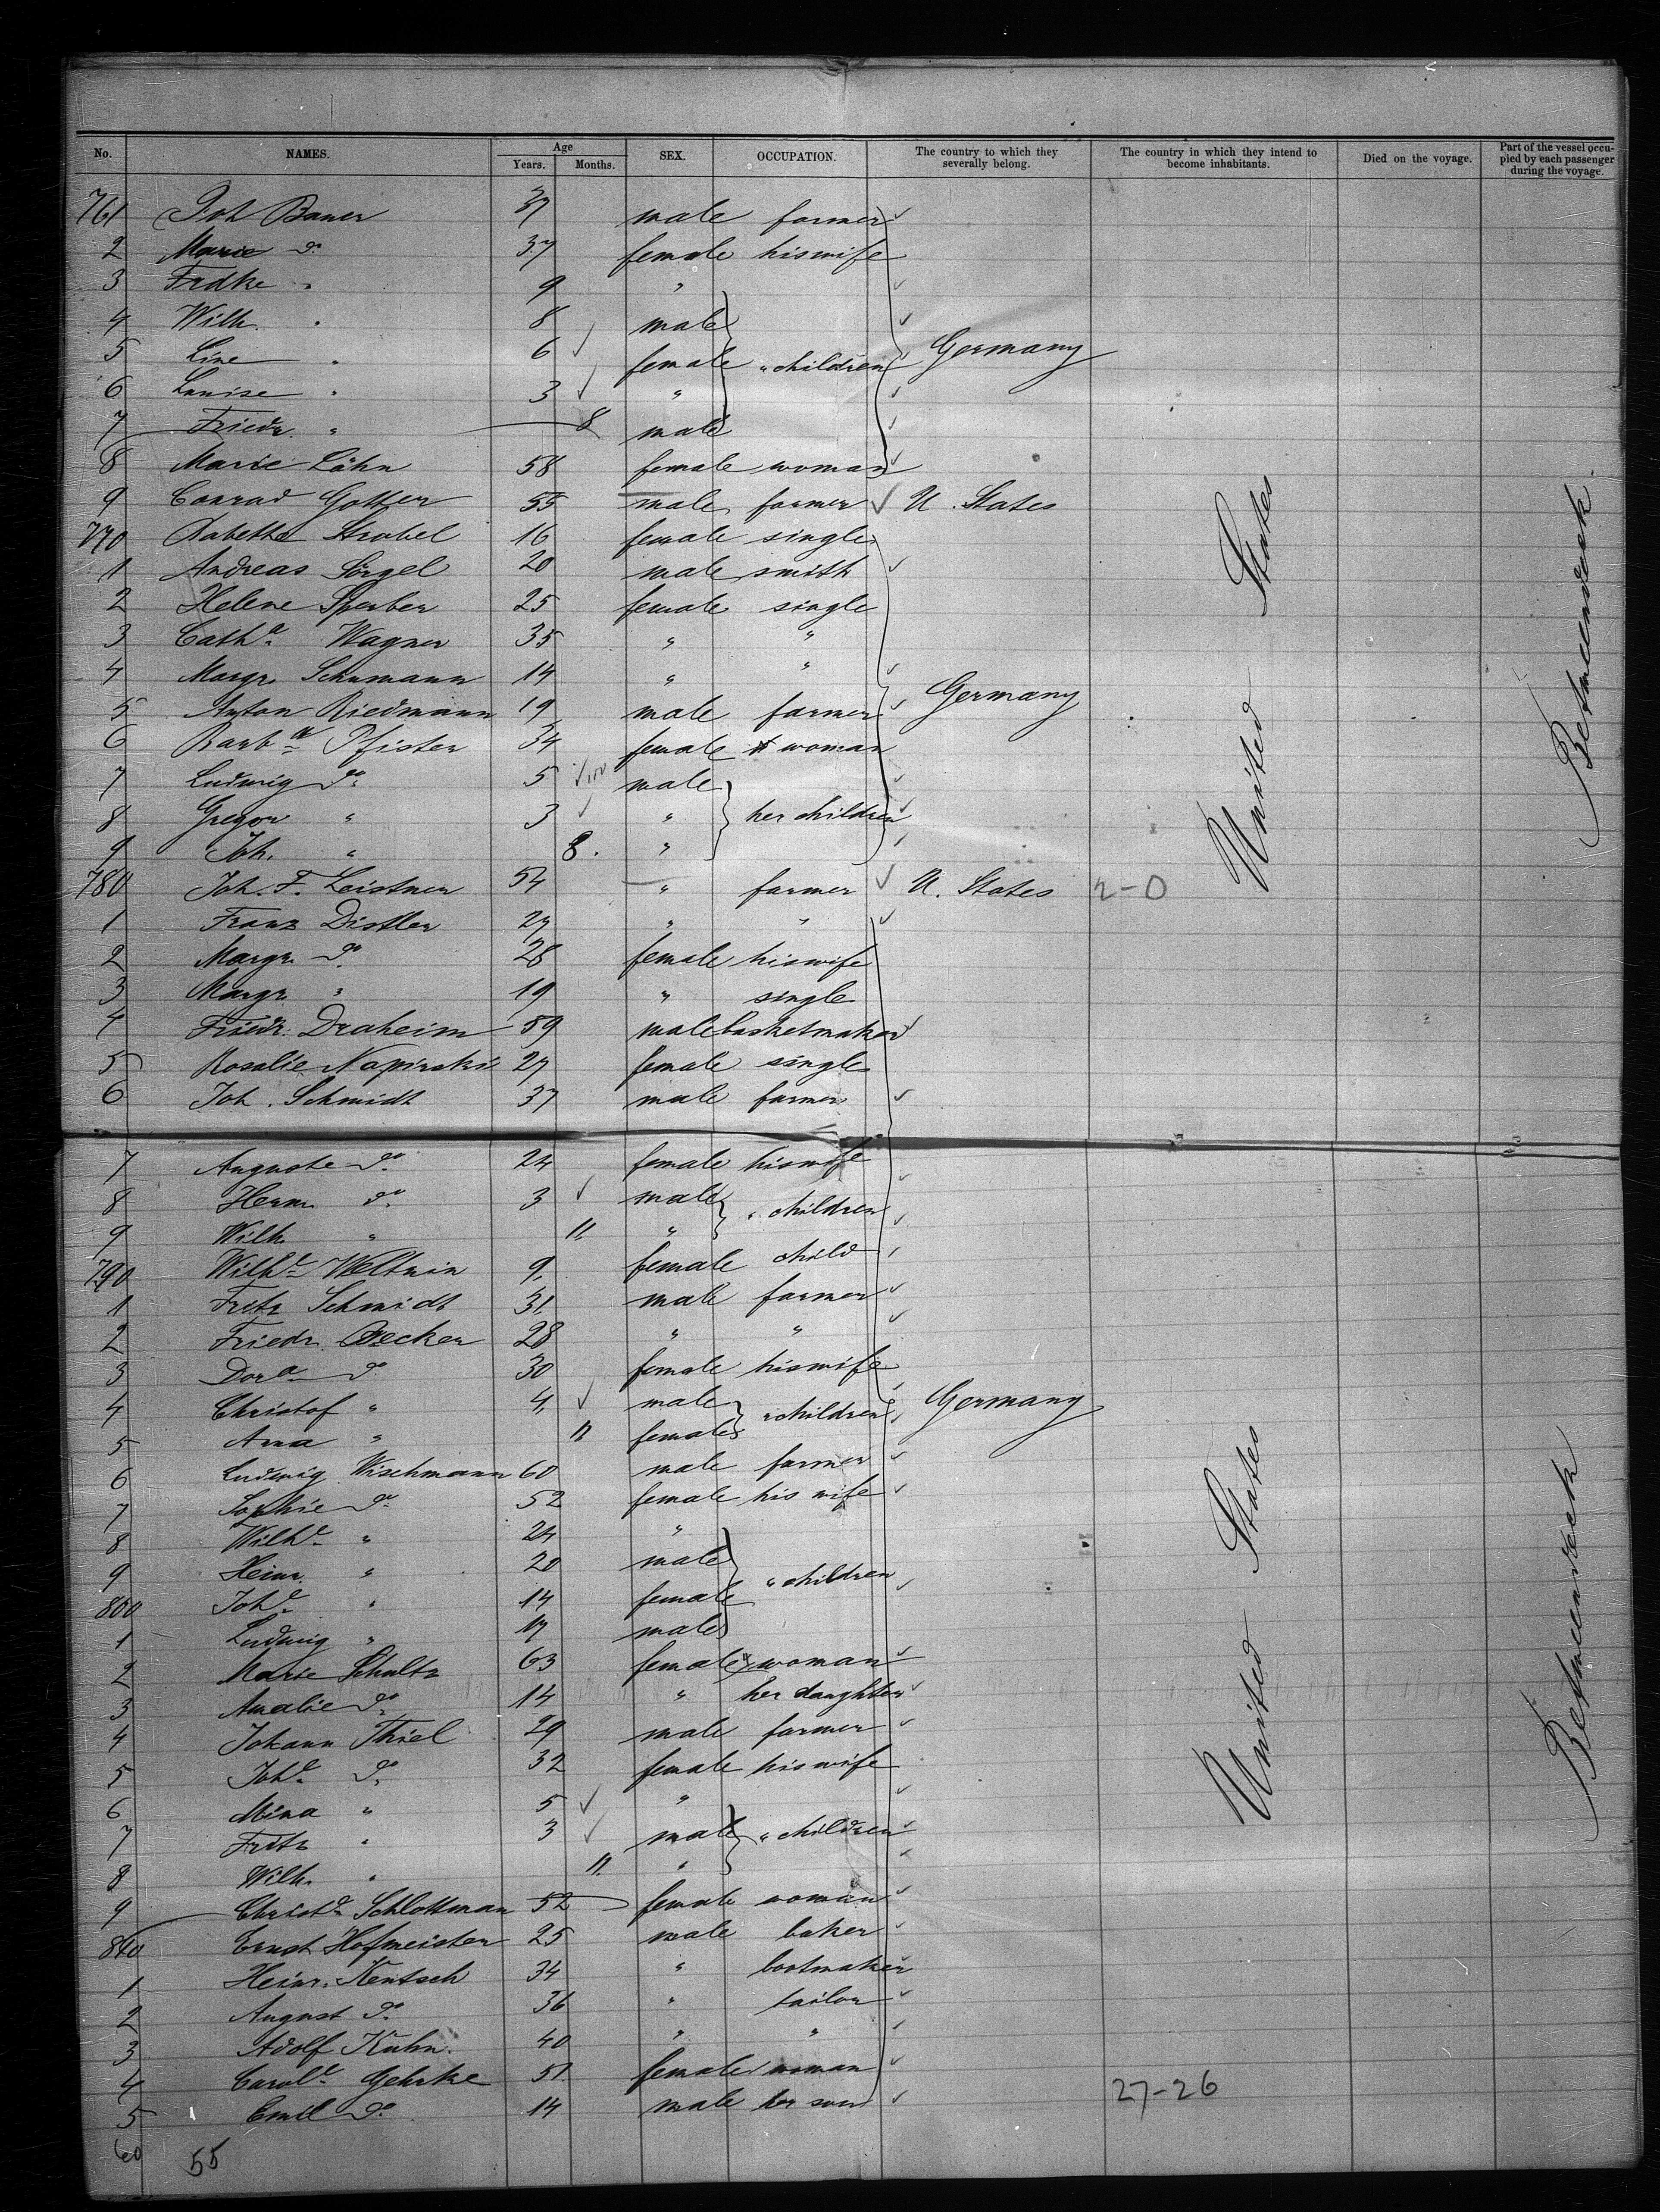 No. NAMES. Age Years. Months. SEX. OCCUPATION. The country to which they severally belong. The country in which they intend to become inhabitants. Died on the voyage. Part of the vessel occupied by each passenger during the voyage.
761 Joh Bauer 37 male farmer
2 Marie do 37 female his wife
3 Fredke " 9 "
4 Wilh. " 8 male
5 Line " 6 female " children Germany
6 Louise " 3 "
7 Friedr. " 8 male
8 Marie Löhn 58 female woman
9 Conrad Gotter 55 male farmer U. States
770 Babette Strobel 16 female single
1 Andreas Sörgel 20 male smith
2 Helene Sperber 25 female single
3 Cathe Wagner 35 " "
4 Margr. Schumann 14 " "
5 Anton Riedmann 19 male farmer Germany
6 Barba Pfister 34 female woman
7 Ludwig do 5 male
8 Gregor " 3 " her children
9 Joh. " 8. "
780 Joh. F. Leistner 54 " farmer U. States 2-0
1 Franz Distler 27 " "
2 Margr. do 28 female his wife
3 Margr. " 19 " single
4 Friedr. Draheim 59 male basketmaker
5 Rosalie Napirski 27 female single
6 Joh. Schmidt 37 male farmer
7 Auguste do 24 female his wife
8 Herm. do 3 male " children
9 Wilh. " 11. "
790 Wilhe Weltrin 9. female child
1 Fritz Schmidt 31. male farmer
2 Friedr. Becker 28 " "
3 Dora do 30 female his wife
4 Christof " 4. male " children Germany
5 Anna " 11 female
6 Ludwig Wischmann 60 male farmer
7 Sophie do 52 female his wife
8 Wilhe " 24 "
9 Heinr. " 20 male " children
800 Johe " 14 female
1 Ludwig " 17 male
2 Marie Schultz 63 female woman
3 Amalie do 14 " her daughter
4 Johann Thiel 29 male farmer
5 Johe do 32 female his wife
6 Mina " 5 "
7 Fritz " 3 male " children
8 Wilh. " 11. "
9 Christe Schlottman 52 female woman
810 Ernst Hofmeister 25 male baker
1 Heinr. Kentsch 34 " bootmaker
2 August do 36 " tailor
3 Adolf Kuhn. 40 " "
4 Carole Gehrke 51. female woman
5 Emil do 14 male her son 27-26
60 55
United States
United States
Betweendeck
Betweendeck